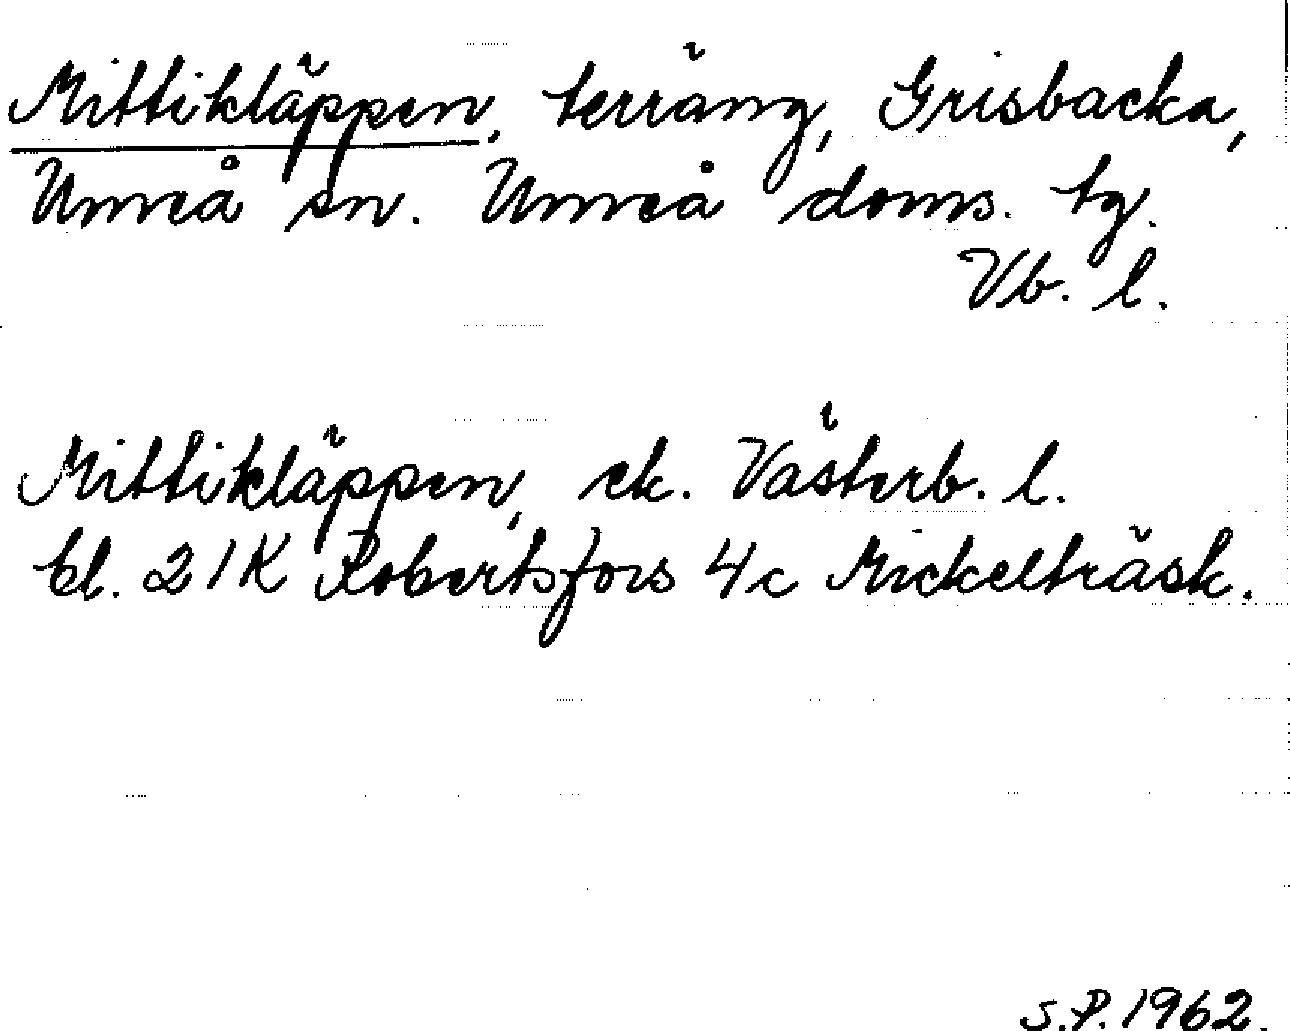 Mittikläppen, terräng, Grisbacka,
Umeå sn. Umeå doms. tg.
Vb. l.
Mittikläppen, ek. Västerb. l.
bl. 21K Robertsfors 4c Mickelträsk.
S.P. 1962.